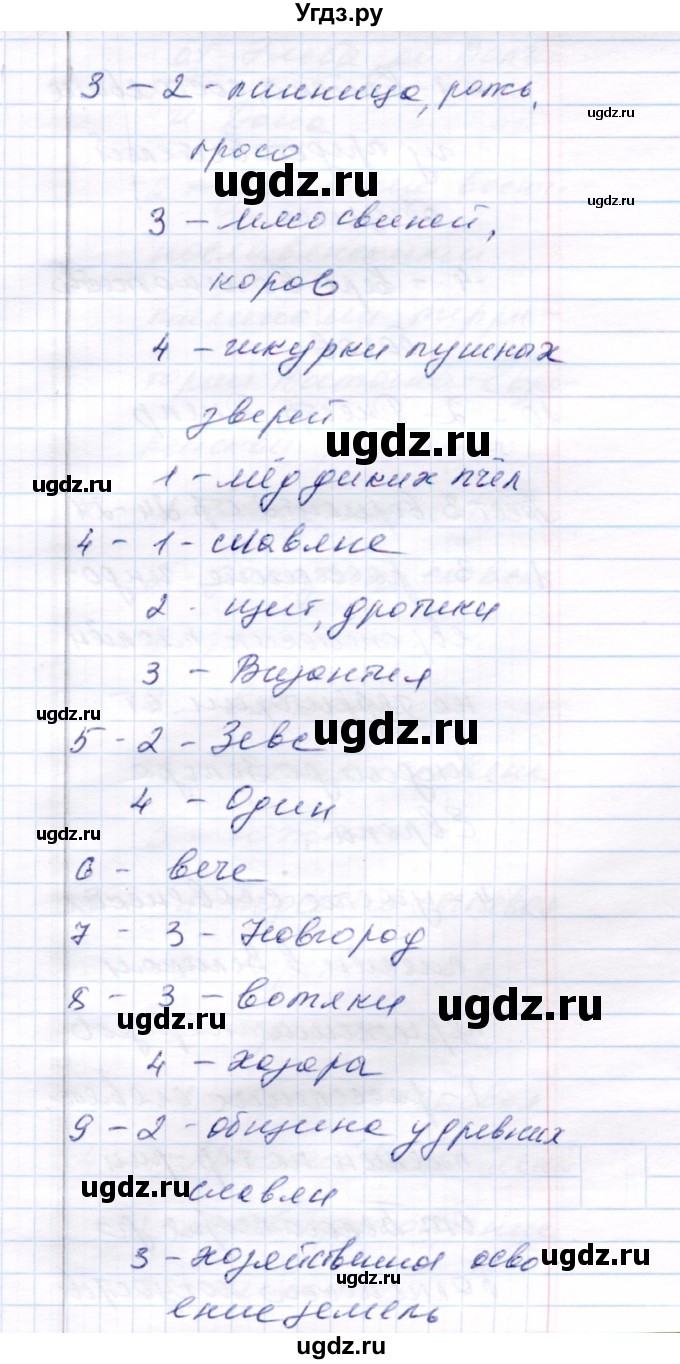 Угдз.ру
3 - 2 - пшеница, рожь,
ugdz.ru
просо
ugdz.ru
ugdz.ru
3 - мясо свиней,
коров
4 - шкурки пушных
зверей
ugdz.ru
1 - мёд диких пчёл
ugdz.ru
4 - 1 - славяне
2 - щит, дротики
3 - Византия
ugdz.ru
5 - 2 - Зевс
ugdz.ru
4 - Один
ugdz.ru
6 - вече
7 - 3 - Новгород
8 - 3 - вотяки
ugdz.ru
ugdz.ru
4 - хазара
9 - 2 - община у древних
славян
ugdz.ru
3 - хозяйственная осво
ugdz.ru
ugdz.ru
ение земель
ugdz.ru